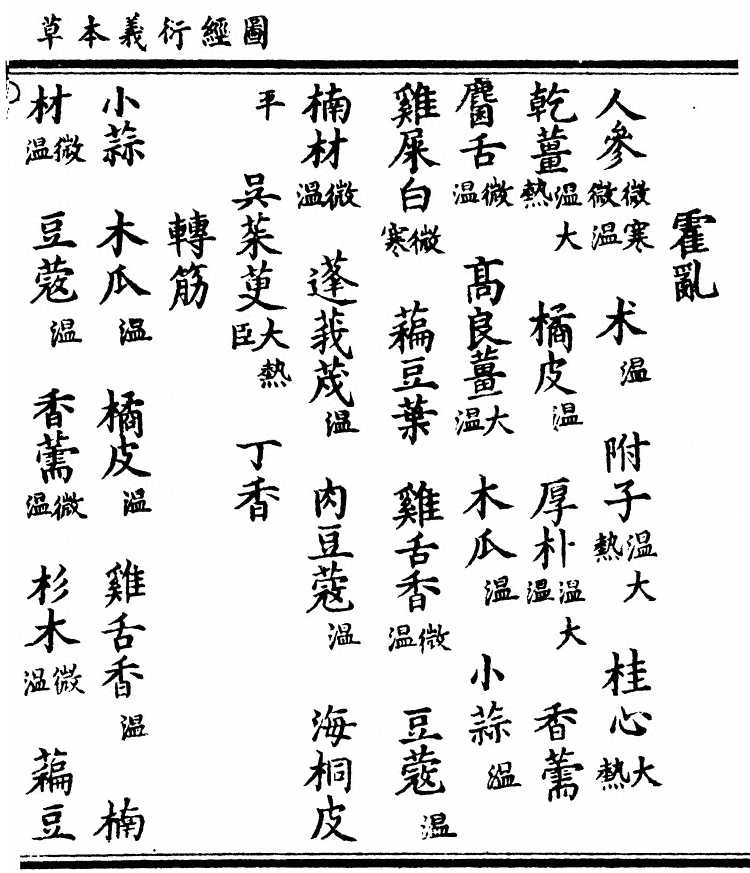 圖經衍義本草
霍亂
人參 微寒微温 术 温 附子 温大熱 桂心 大熱
乾薑 温大熱 橘皮 温 厚朴 温大温 香薷
麕舌 微温 高良薑 大温 木瓜 温 小蒜 温
雞屎白 微寒 藊豆葉 雞舌香 微温 豆蔻 温
楠材 微温 蓬莪茂 温 肉豆蔻 温 海桐皮
平 吳茱萸 大熱臣 丁香
轉筋
小蒜 木瓜 温 橘皮 温 雞舌香 温 楠
材 微温 豆蔻 温 香薷 微温 杉木 微温 藊豆